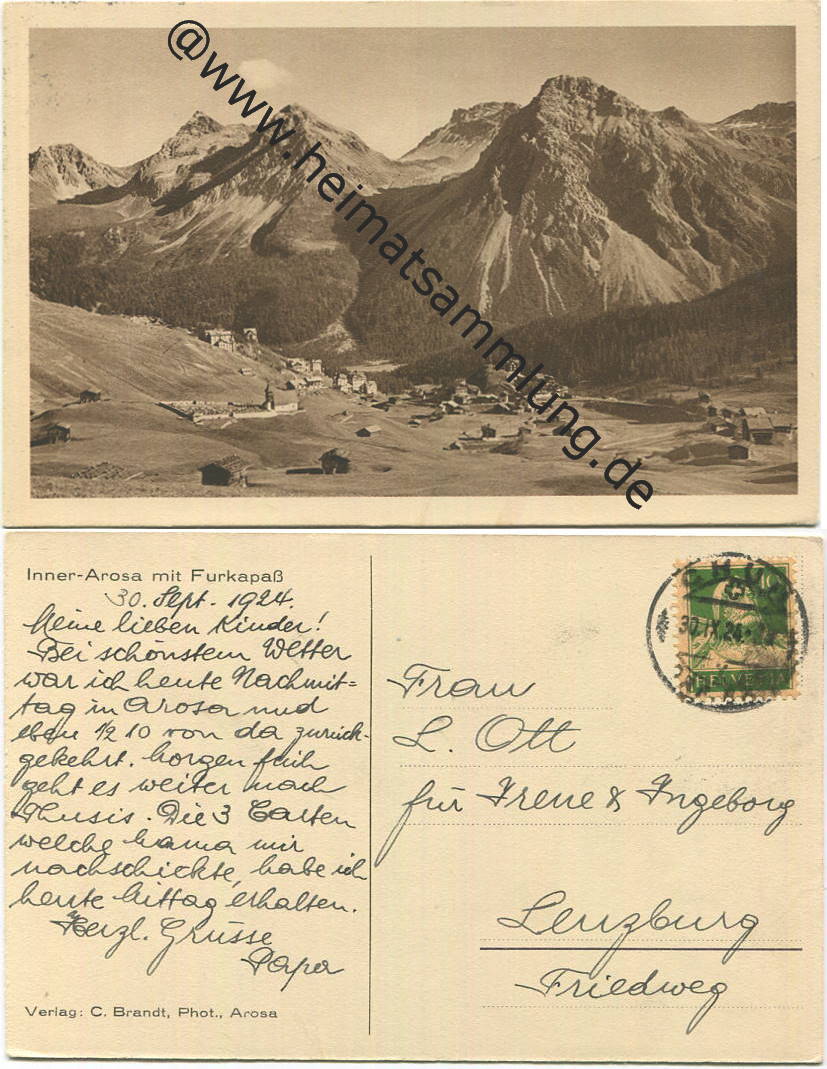 @www.heimatsammlung.de
Inner-Arosa mit Furkapaß
30. Sept. 1924.
Meine lieben Kinder!
Bei schönstem Wetter
war ich heute Nachmit=
tag in Arosa und
eben 1/2 10 von da zurück-
gekehrt. Morgen früh
geht es weiter nach
Thusis. Die 3 Carten
welche Mama mir
nachschickte, habe ich
heute Mittag erhalten.
Herzl. Grüsse
Papa
Verlag: C. Brandt, Phot., Arosa
CHUR
10
30.IX.24
HELVETIA
Frau
L. Ott
für Irene & Ingeborg
Lenzburg
Friedweg